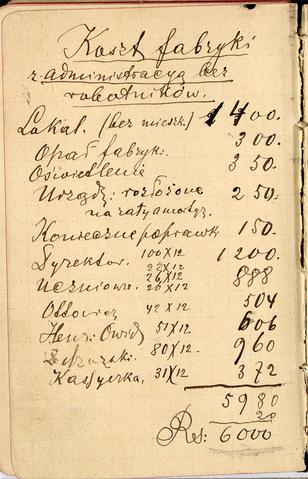 Koszt fabryki
z administracyą bez
robotników.
Lokal. (bez mieszk.) 1400.
Opał fabryki. 300.
Oświetlenie 350.
Urządz: rozłożone 250.
na raty amortyz.
Konieczne poprawk 150.
Dyrektor. 100 x 12 1200.
23 x 12
26 x 12
Uczniowie. 25 x 12 888
Ottowicz 42 x 12 504
Henr: 51 x 12 606
80 x 12. 960
Kassyerka, 31 x 12 372
5980
20
Res: 6000